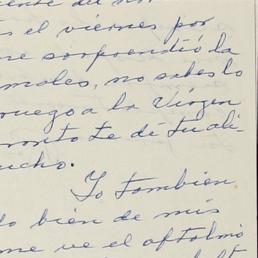 s el viernes por
me sorprendió la
males, no sabes lo
ruego a la Virgen
pronto te dé tu ali-
ucho.
Yo tambien
do bien de mis
me ve el oftalmó